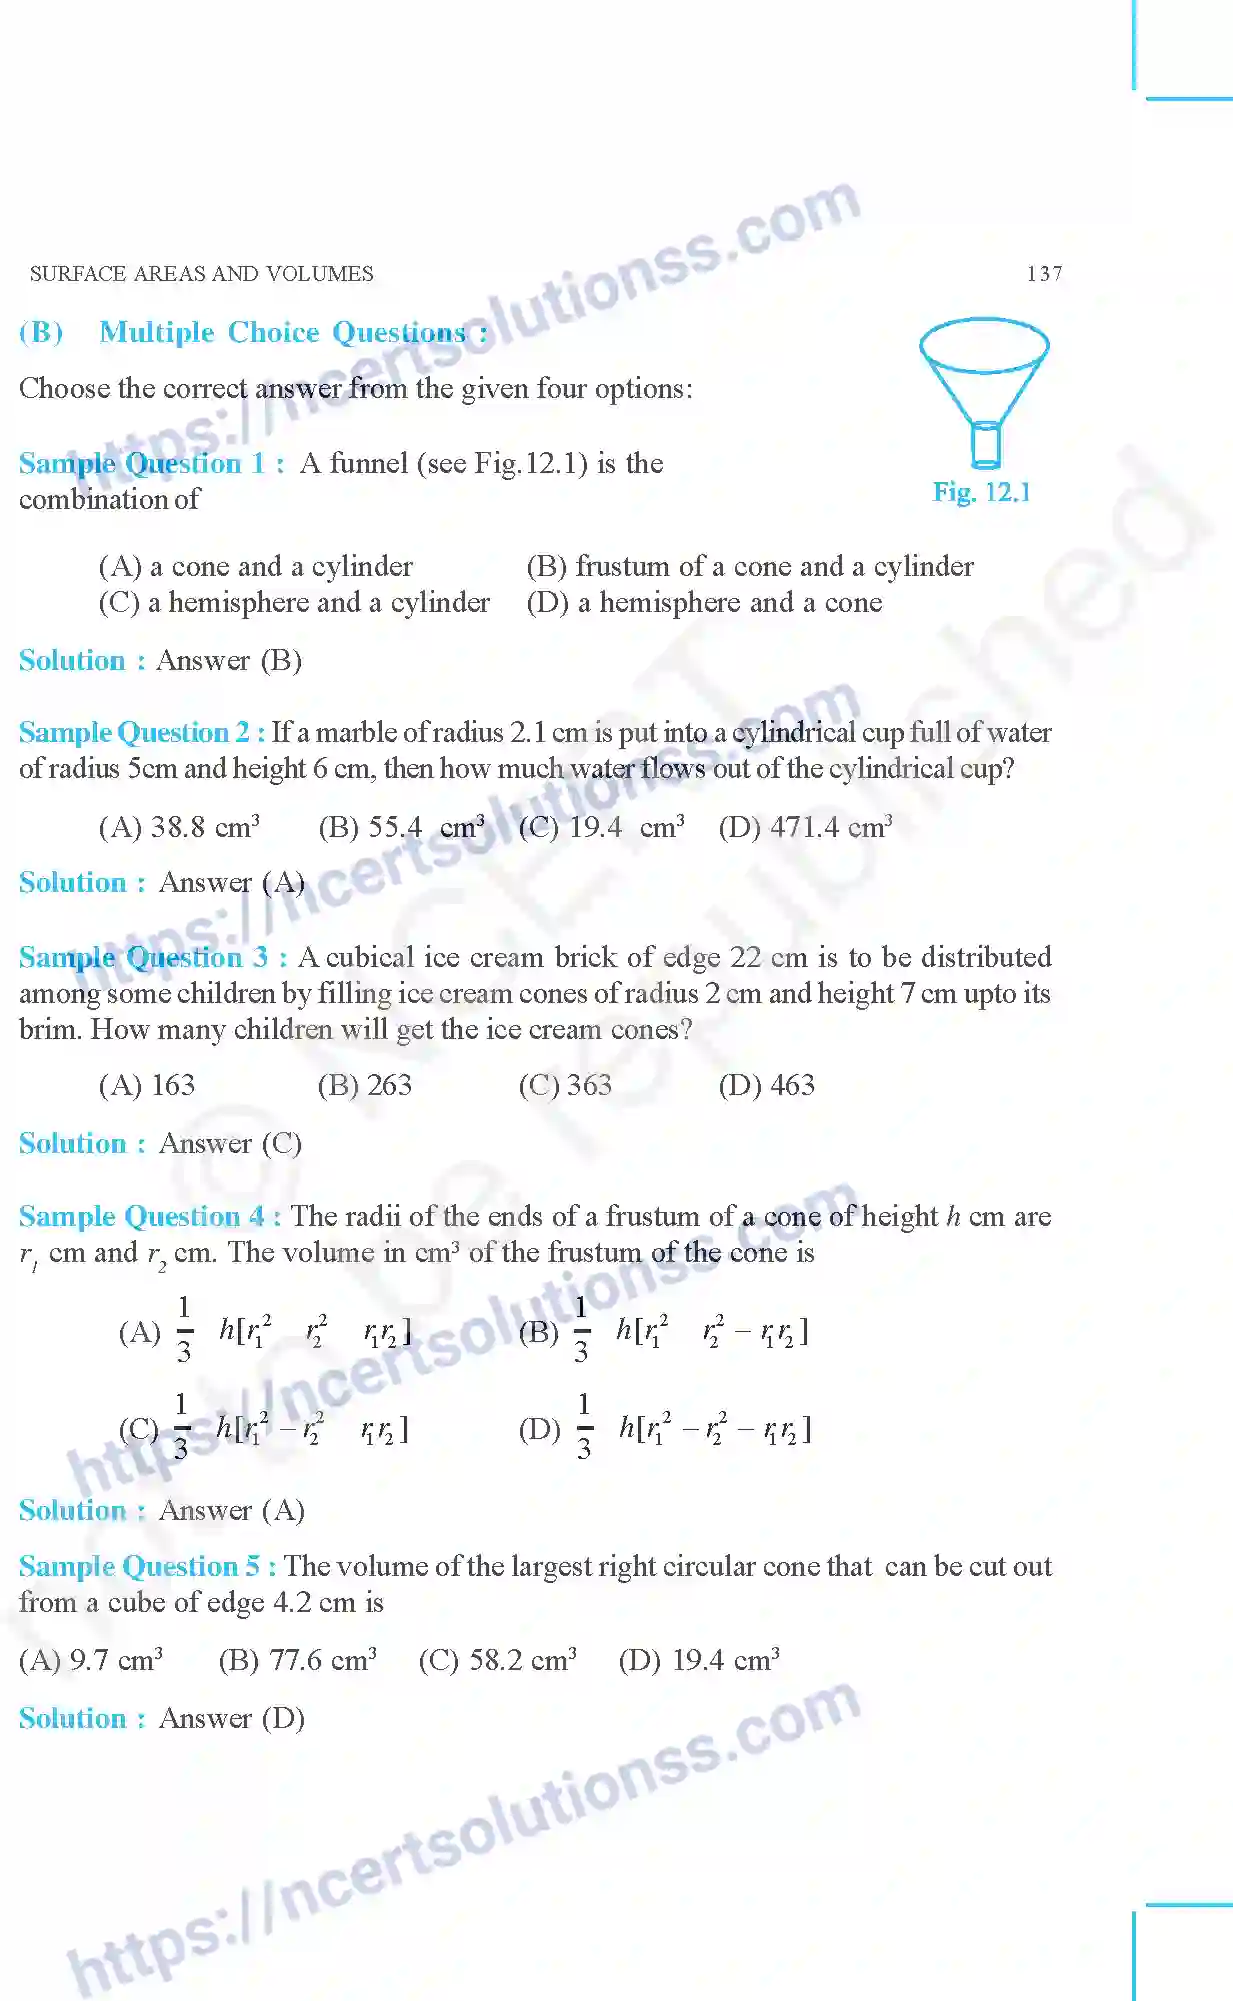 SURFACE AREAS AND VOLUMES 137
(B) Multiple Choice Questions :
Choose the correct answer from the given four options:
Sample Question 1 : A funnel (see Fig.12.1) is the
combination of
Fig. 12.1
(A) a cone and a cylinder (B) frustum of a cone and a cylinder
(C) a hemisphere and a cylinder (D) a hemisphere and a cone
Solution : Answer (B)
Sample Question 2 : If a marble of radius 2.1 cm is put into a cylindrical cup full of water
of radius 5cm and height 6 cm, then how much water flows out of the cylindrical cup?
(A) 38.8 cm³ (B) 55.4 cm³ (C) 19.4 cm³ (D) 471.4 cm³
Solution : Answer (A)
Sample Question 3 : A cubical ice cream brick of edge 22 cm is to be distributed
among some children by filling ice cream cones of radius 2 cm and height 7 cm upto its
brim. How many children will get the ice cream cones?
(A) 163 (B) 263 (C) 363 (D) 463
Solution : Answer (C)
Sample Question 4 : The radii of the ends of a frustum of a cone of height h cm are
r₁ cm and r₂ cm. The volume in cm³ of the frustum of the cone is
(A) 1/3 h[r₁² r₂² r₁r₂] (B) 1/3 h[r₁² r₂² – r₁r₂]
(C) 1/3 h[r₁² – r₂² r₁r₂] (D) 1/3 h[r₁² – r₂² – r₁r₂]
Solution : Answer (A)
Sample Question 5 : The volume of the largest right circular cone that can be cut out
from a cube of edge 4.2 cm is
(A) 9.7 cm³ (B) 77.6 cm³ (C) 58.2 cm³ (D) 19.4 cm³
Solution : Answer (D)
https://ncertsolutionss.com
https://ncertsolutionss.com
https://ncertsolutionss.com
https://ncertsolutionss.com
© NCERT
not to be republished